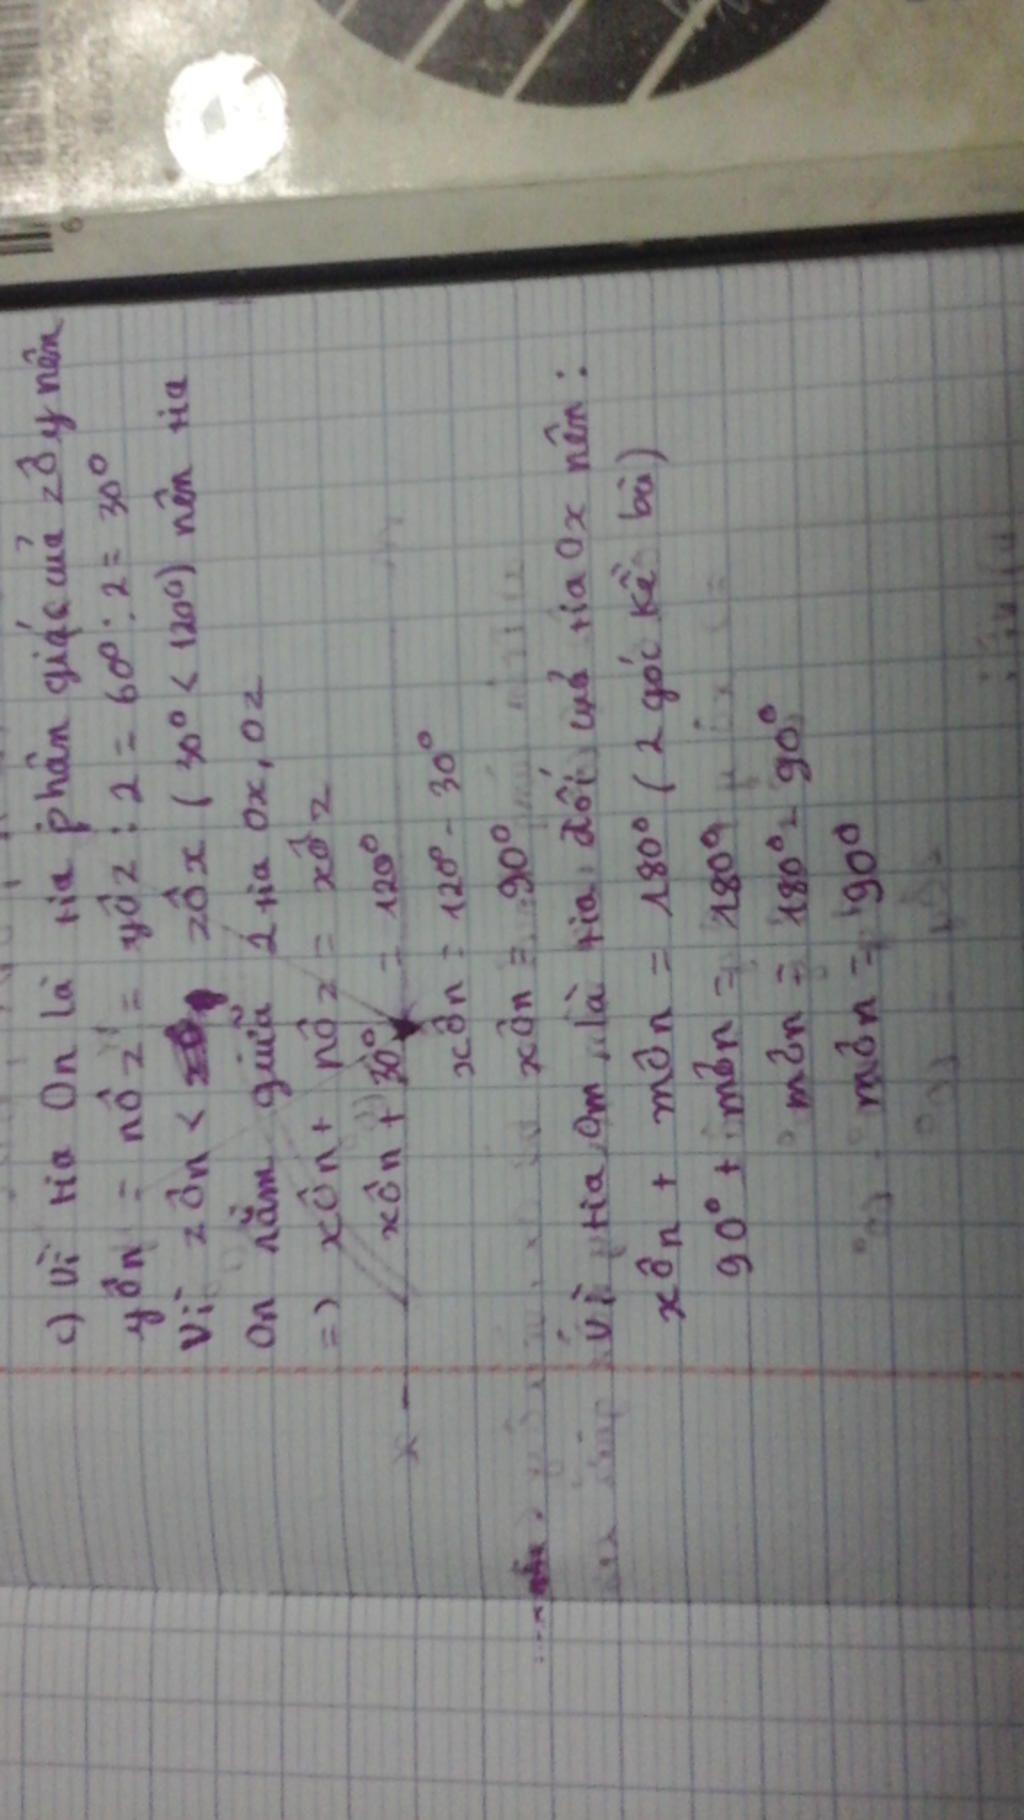 c) Vì tia On là tia phân giác của zÔy nên
yÔn = nÔz = yÔz : 2 = 60° : 2 = 30°
Vì zÔn < zÔx ( 30° < 120°) nên tia
On nằm giữa 2 tia Ox, Oz
=> xÔn + nÔz = xÔz
xÔn + 30° = 120°
xÔn = 120° - 30°
xÔn = 90°
Vì tia Om là tia đối của tia Ox nên :
xÔn + mÔn = 180° ( 2 góc kề bù)
90° + mÔn = 180°
mÔn = 180° - 90°
mÔn = 90°